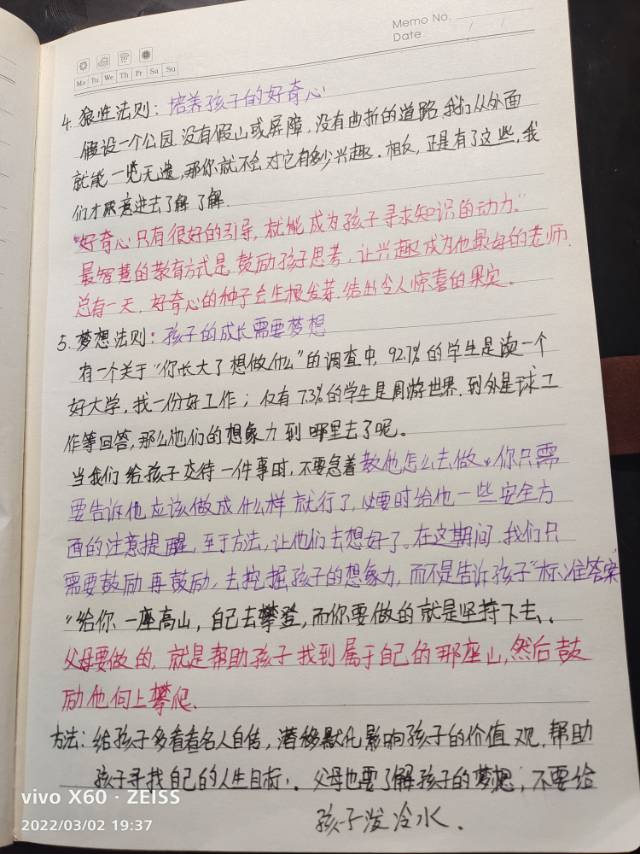 Memo No.
Date / /
Mo Tu We Th Fr Sa Su
4. 狼性法则：培养孩子的好奇心
假设一个公园没有假山或屏障，没有曲折的道路，我们从外面
就能一览无遗，那你就不会对它有多少兴趣。相反，正是有了这些，我
们才愿意进去了解了解.
"好奇心只有很好的引导，就能成为孩子寻求知识的动力."
最智慧的教育方式是鼓励孩子思考，让兴趣成为他最好的老师.
总有一天，好奇心的种子会生根发芽.结出令人惊喜的果实.
5. 梦想法则：孩子的成长需要梦想
有一个关于"你长大了想做什么"的调查中，92.7%的学生是读一个
好大学，找一份好工作；仅有7.3%的学生是周游世界.到外星球工
作等回答，那么他们的想象力到哪里去了呢。
当我们给孩子交待一件事时，不要急着教他怎么去做。你只需
要告诉他应该做成什么样就行了，必要时给他一些安全方
面的注意提醒，至于方法，让他们去想好了。在这期间，我们只
需要鼓励再鼓励，去挖掘孩子的想象力，而不是告诉孩子"标准答案
"给你一座高山，自己去攀登，而你要做的就是坚持下去.
父母要做的，就是帮助孩子找到属于自己的那座山，然后鼓
励他向上攀爬.
方法：给孩子多看看名人自传，潜移默化影响孩子的价值观.帮助
孩子寻找自己的人生目标。父母也要了解孩子的梦想，不要给
孩子泼冷水.
vivo X60 · ZEISS
2022/03/02 19:37